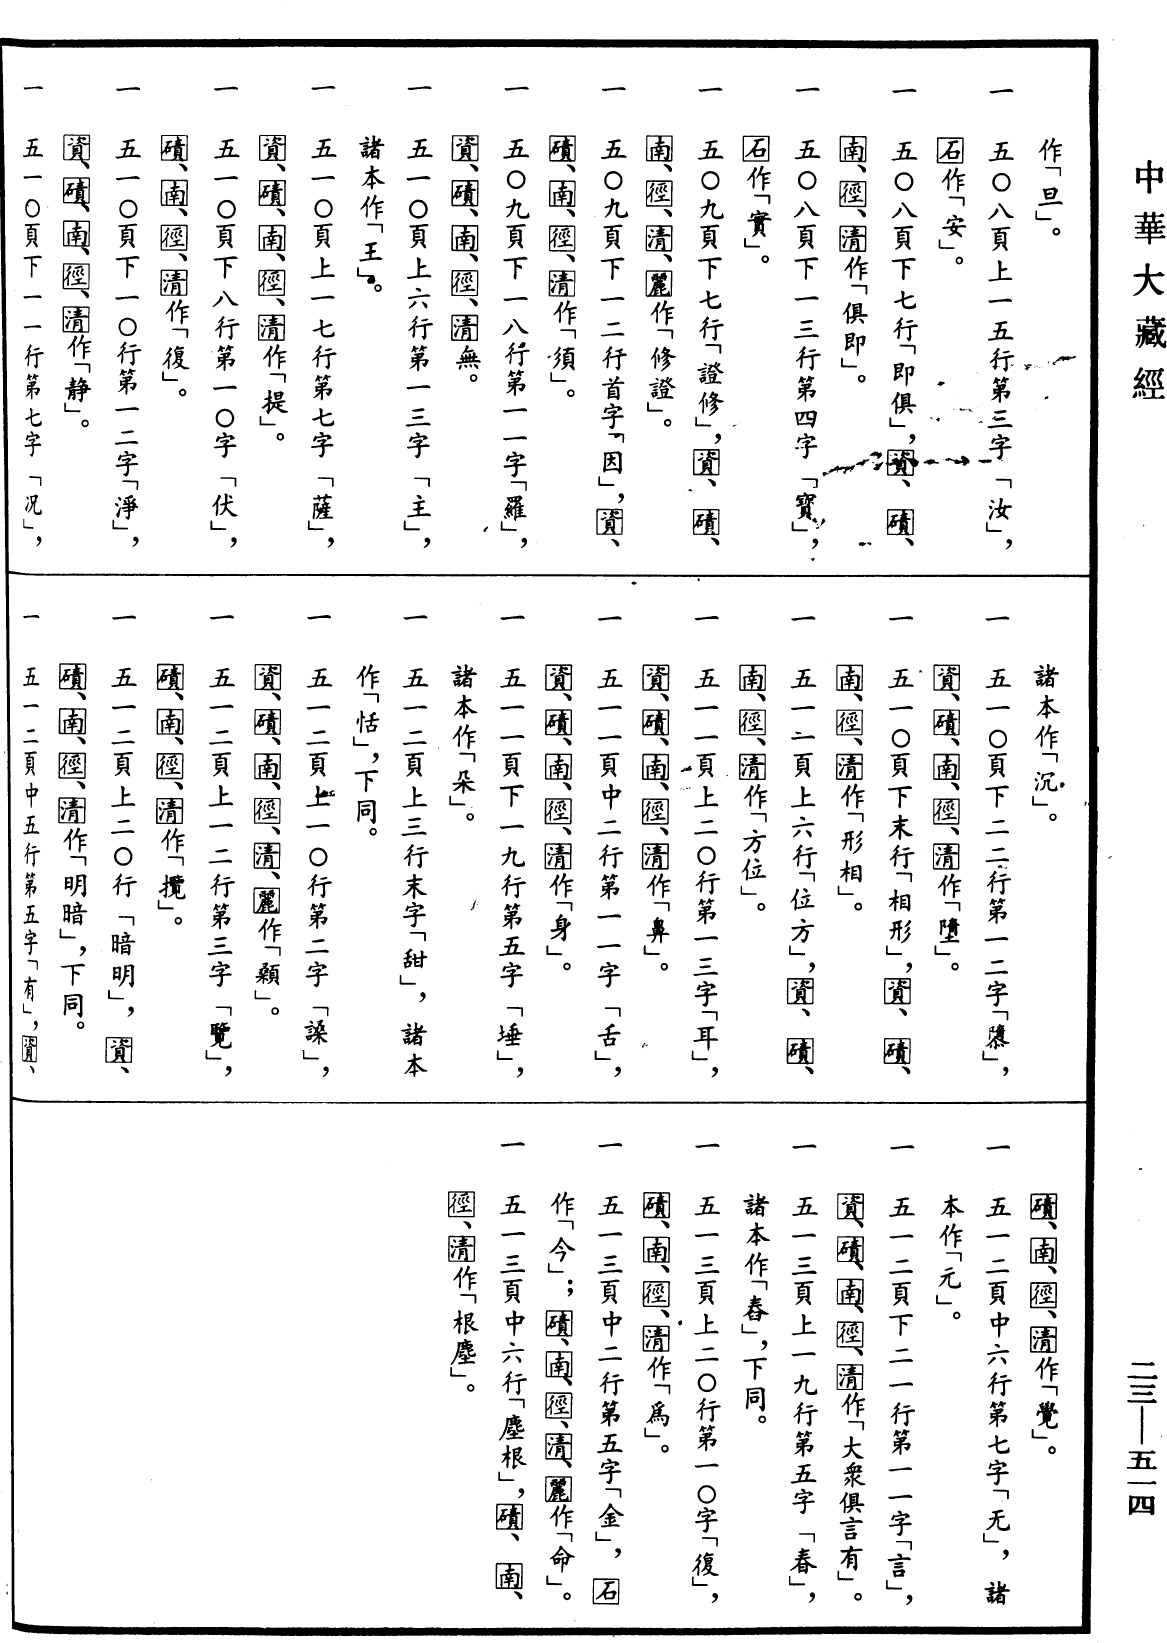 中華大藏經
二三—五一四
作「旦」。
一　五〇八頁上一五行第三字「汝」，
石作「安」。
一　五〇八頁下七行「即俱」，資、磧、
南、徑、清作「俱即」。
一　五〇八頁下一三行第四字「寶」，
石作「實」。
一　五〇九頁下七行「證修」，資、磧、
南、徑、清、麗作「修證」。
一　五〇九頁下一二行首字「因」，資、
磧、南、徑、清作「須」。
一　五〇九頁下一八行第一一字「羅」，
資、磧、南、徑、清無。
一　五一〇頁上六行第一三字「主」，
諸本作「王」。
一　五一〇頁上一七行第七字「薩」，
資、磧、南、徑、清作「提」。
一　五一〇頁下八行第一〇字「伏」，
磧、南、徑、清作「復」。
一　五一〇頁下一〇行第一二字「淨」，
資、磧、南、徑、清作「静」。
一　五一〇頁下一一行第七字「况」，
諸本作「沉」。
一　五一〇頁下二二行第一二字「隳」，
資、磧、南、徑、清作「墮」。
一　五一〇頁下末行「相形」，資、磧、
南、徑、清作「形相」。
一　五一一頁上六行「位方」，資、磧、
南、徑、清作「方位」。
一　五一一頁上二〇行第一三字「耳」，
資、磧、南、徑、清作「鼻」。
一　五一一頁中二行第一一字「舌」，
資、磧、南、徑、清作「身」。
一　五一一頁下一九行第五字「埵」，
諸本作「朵」。
一　五一二頁上三行末字「甜」，諸本
作「恬」，下同。
一　五一二頁上一〇行第二字「譟」，
資、磧、南、徑、清、麗作「顙」。
一　五一二頁上一二行第三字「覽」，
磧、南、徑、清作「攬」。
一　五一二頁上二〇行「暗明」，資、
磧、南、徑、清作「明暗」，下同。
一　五一二頁中五行第五字「有」，資、
磧、南、徑、清作「覺」。
一　五一二頁中六行第七字「无」，諸
本作「元」。
一　五一二頁下二一行第一一字「言」，
資、磧、南、徑、清作「大衆俱言有」。
一　五一三頁上一九行第五字「春」，
諸本作「舂」，下同。
一　五一三頁上二〇行第一〇字「復」，
磧、南、徑、清作「爲」。
一　五一三頁中二行第五字「金」，石
作「今」；磧、南、徑、清、麗作「命」。
一　五一三頁中六行「塵根」，磧、南、
徑、清作「根塵」。